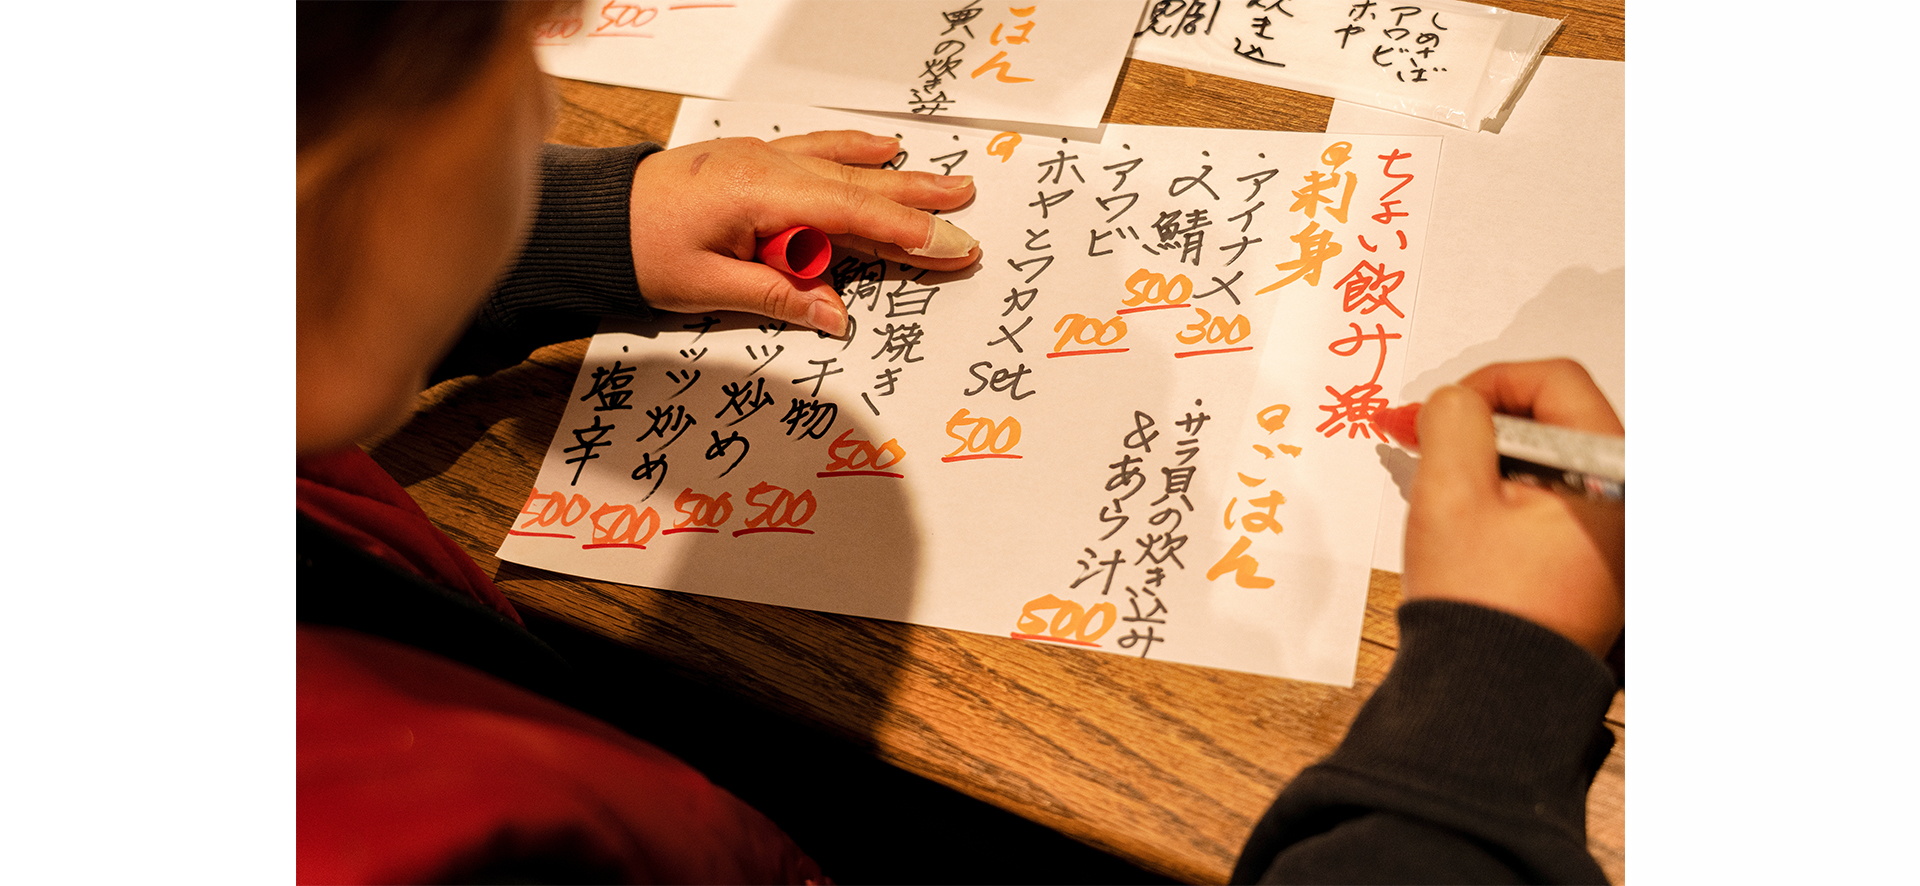 ちょい飲み漁
刺身
・アイナメ 300
・〆鯖 500
・アワビ 700
・ホヤとワカメset 500
ごはん
・サラ貝の炊き込み
&あら汁 500
・ア
白焼き
鯛の干物 500
ッツ炒め 500
ナッツ炒め 500
・塩辛 500
500
ごはん
貝の炊き込み
500
炊き込
しめさば
アワビ
ホヤ